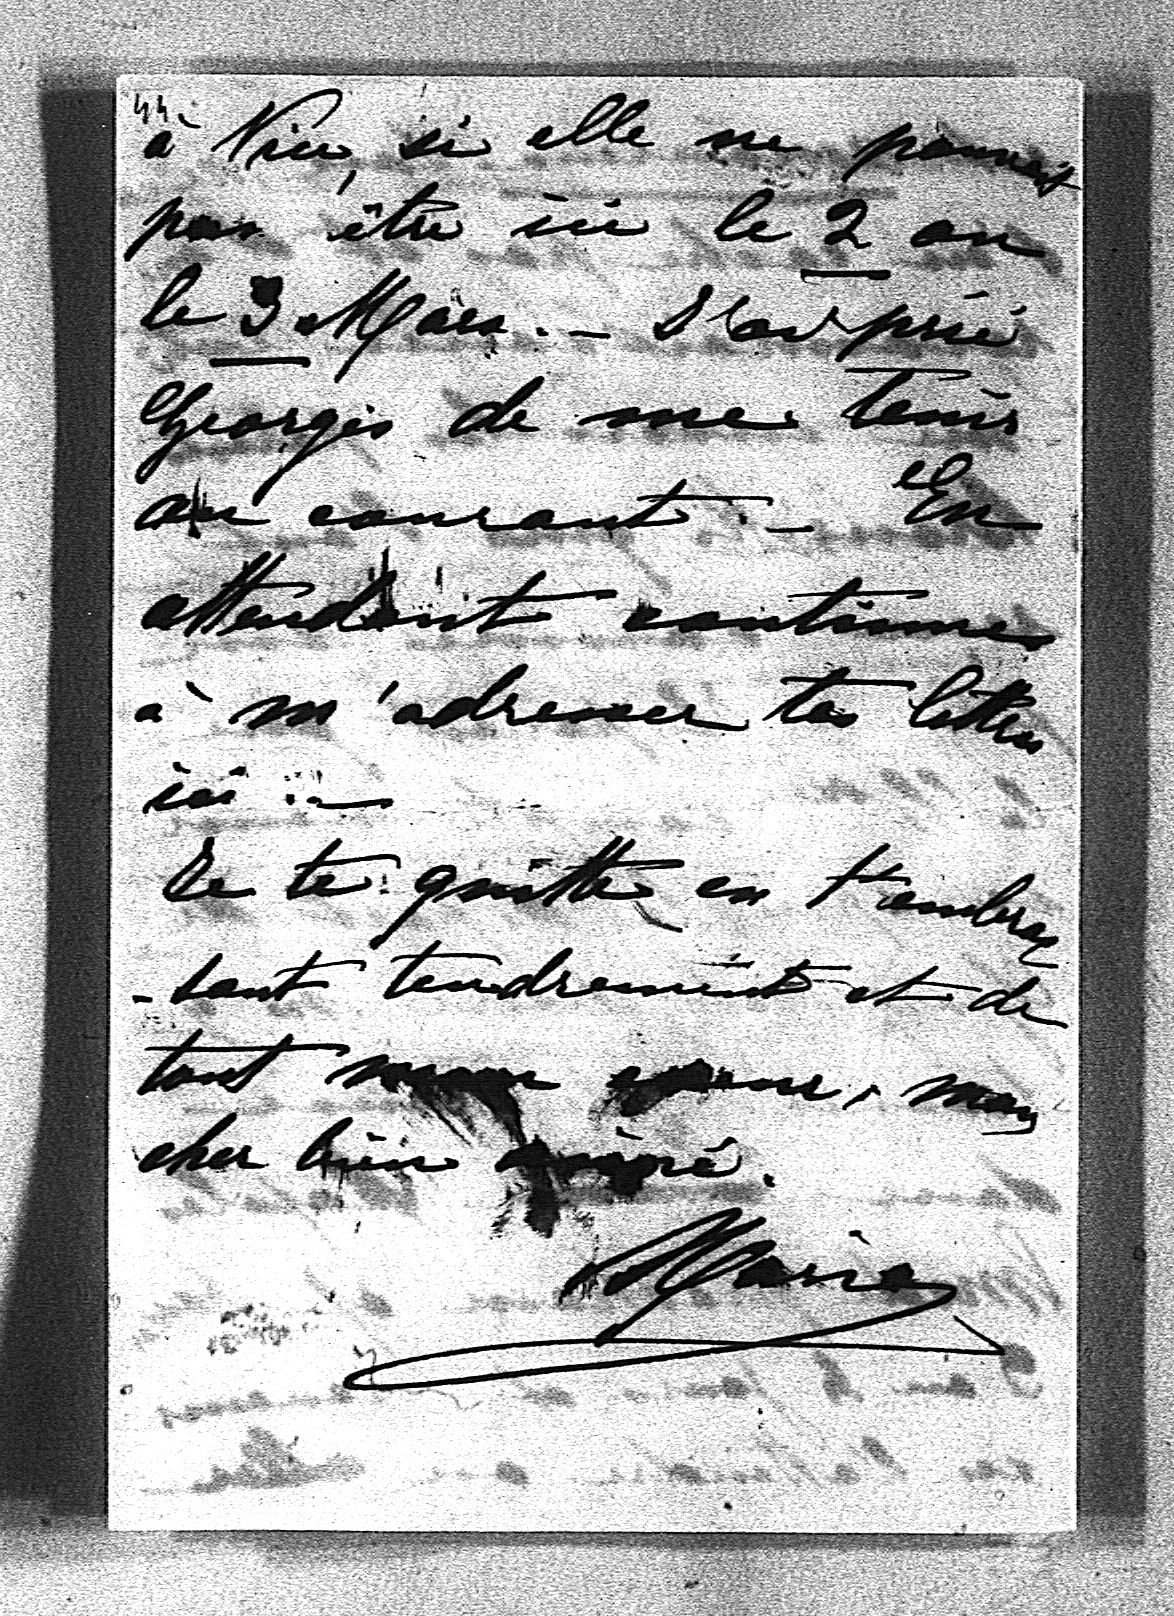 44
à Nice, si elle ne pouvait
pas être ici le 2 ou
le 3 Mars. — J'ai prié
Georges de me tenir
au courant. — En
attendant continues
à m'adresser tes lettres
ici. —
Je te quitte en t'embras
-sant tendrement et de
tout mon cœur, mon
cher bien aimé.
Maria